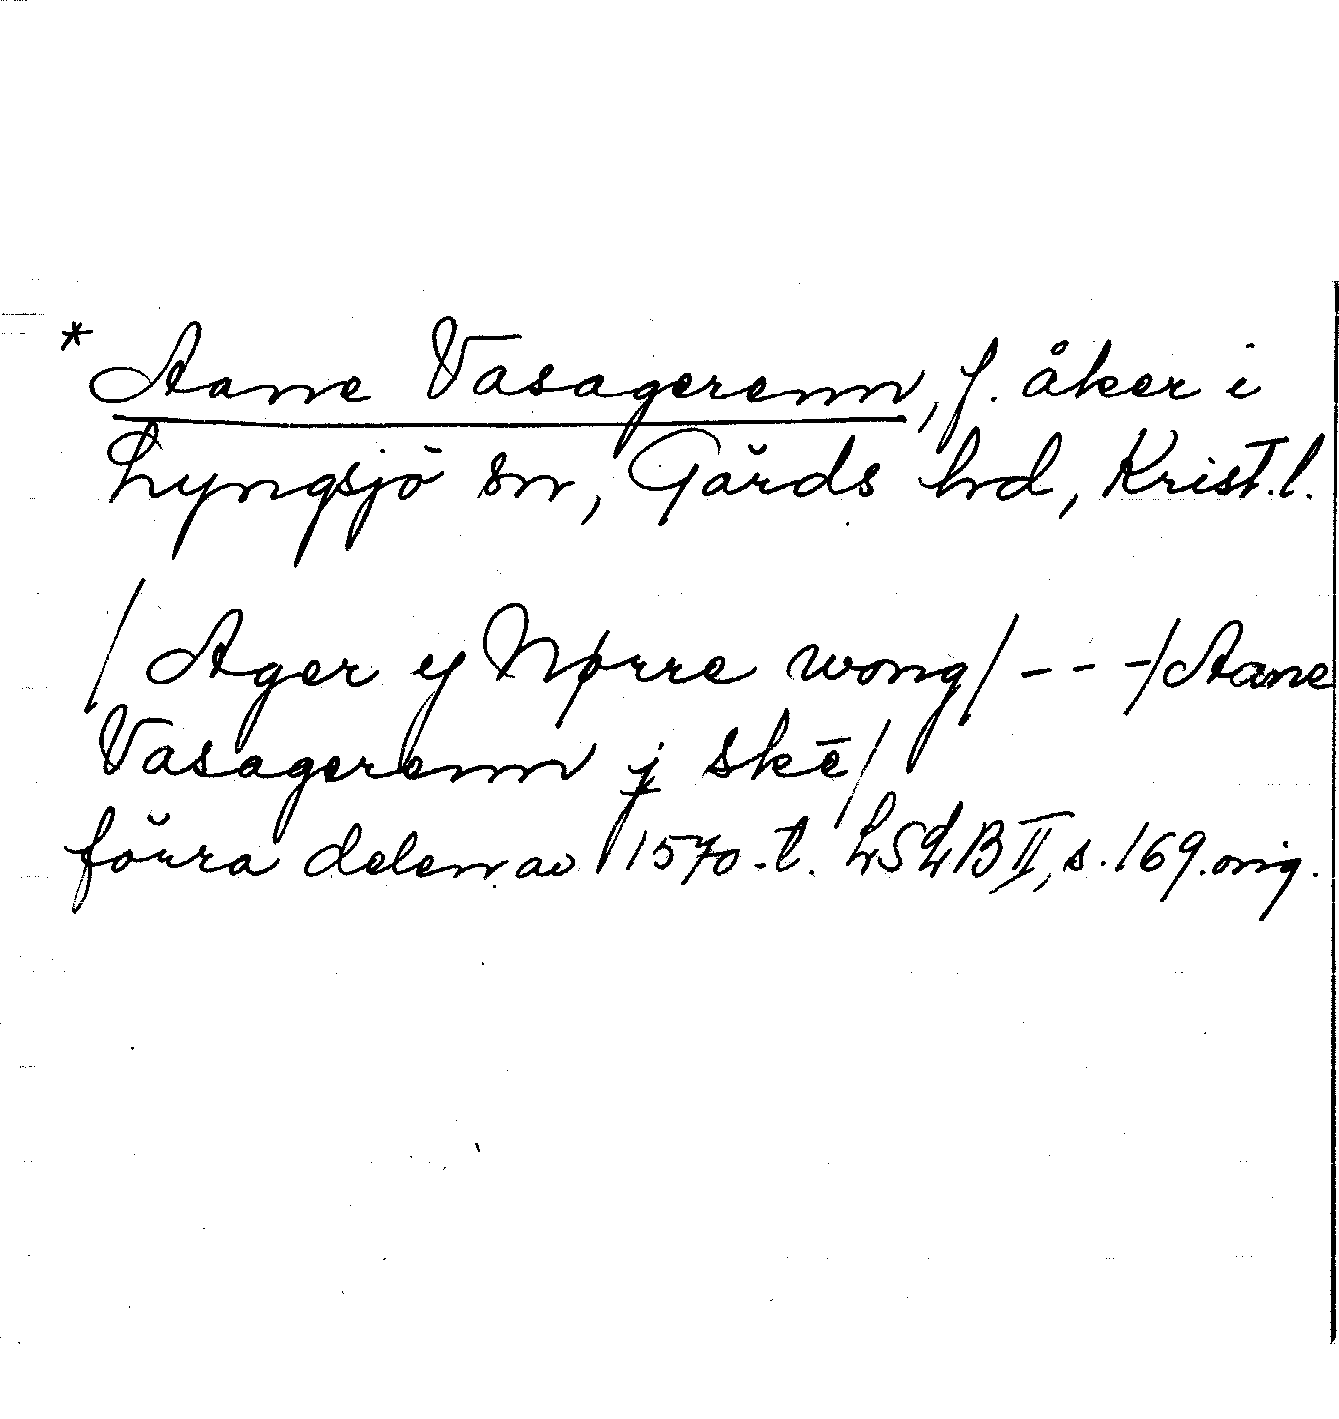 * Aane Vasagerenn, f. åker i
Lyngsjö sn, Gärds hd, Krist. l.
/ Ager y Nørre wong / - - - / Aane
Vasagerenn j skē /
förra delen av 1570-t. LSLB II, s. 169. orig.